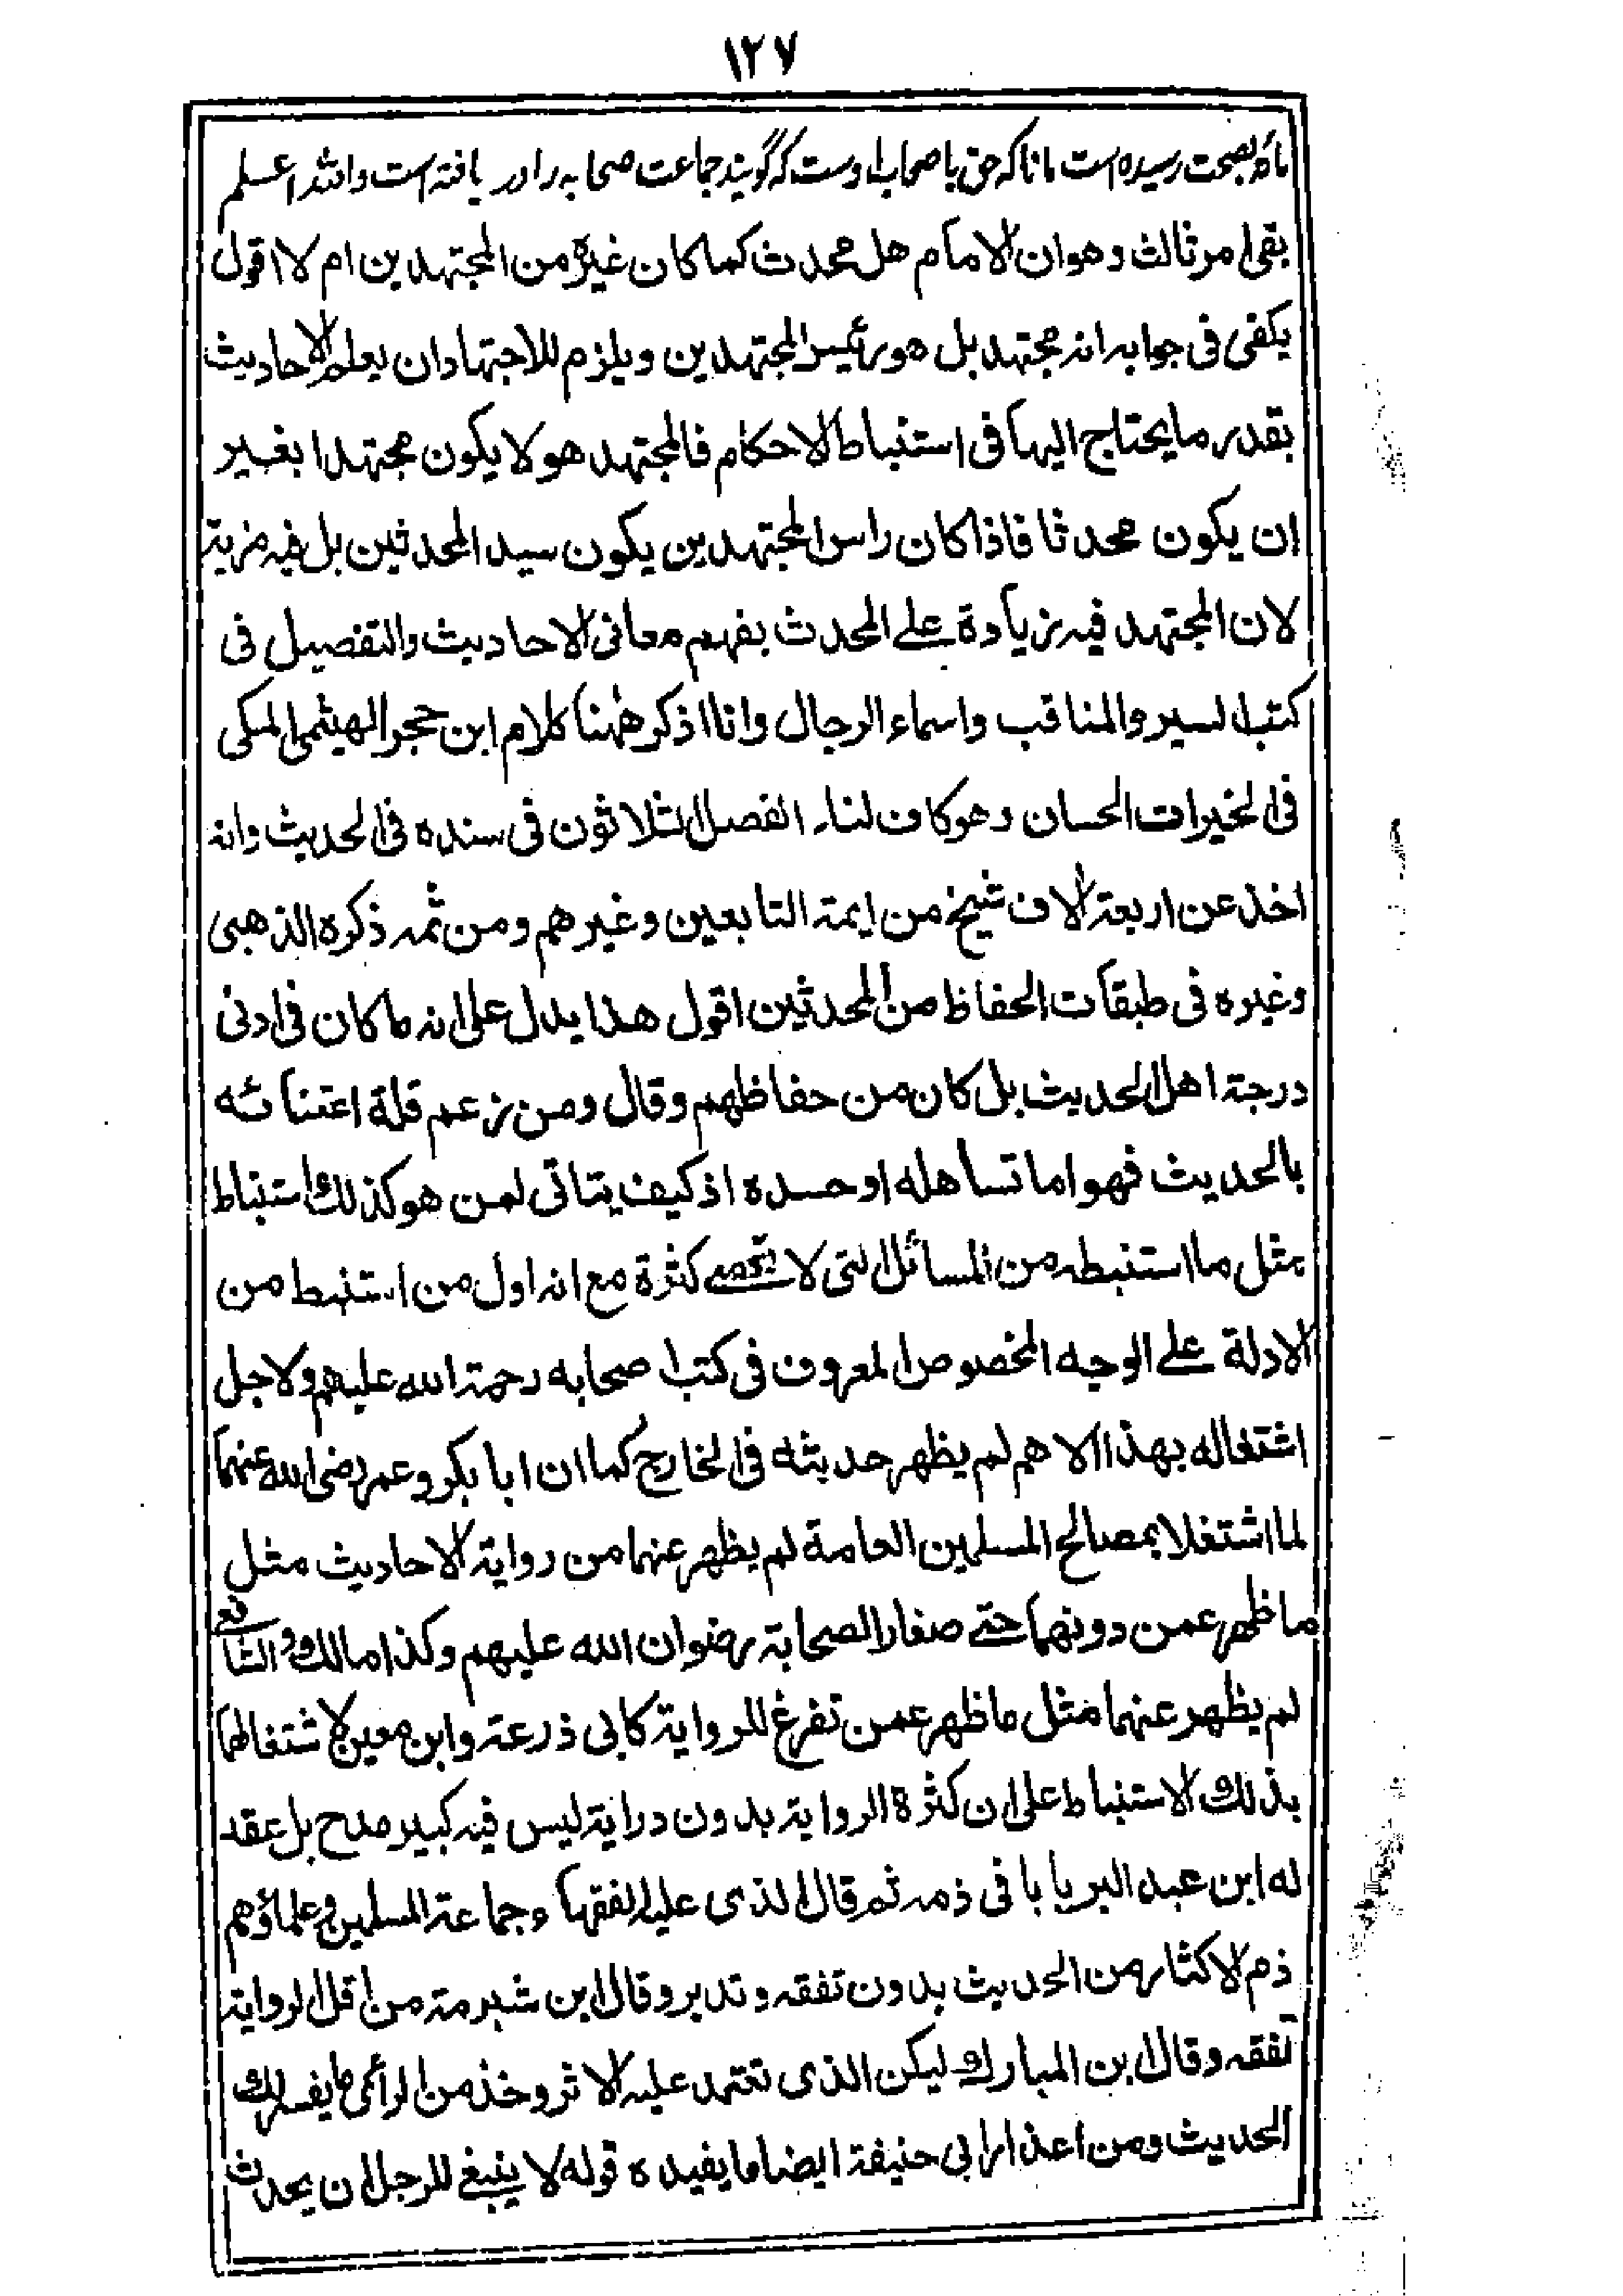 ١٢٧
مائه بصحت رسیده است مانا که حق با صحاب اوست که گویند جماعت صحابه را در یافته است والله اعلم
بقی امر ثالث وهو ان الامام هل محدث كما كان غيره من المجتهدين ام لا اقول
يكفى فى جوابه انه مجتهد بل هو رئيس المجتهدين ويلزم للاجتهاد ان يعلم الاحاديث
بقدر ما يحتاج اليها فى استنباط الاحكام فالمجتهد هو لا يكون مجتهدا بغير
ان يكون محدثا فاذا كان راس المجتهدين يكون سيد المحدثين بل فيه مزية
لان المجتهد فيه زيادة على المحدث بفهم معانى الاحاديث والتفصيل فى
كتب السير والمناقب واسماء الرجال وانا اذكر ههنا كلام ابن حجر الهيثمى المكى
فى الخيرات الحسان وهو كاف لنا۔ الفصل الثلاثون فى سنده فى الحديث وانه
اخذ عن اربعة الاف شيخ من ايمة التابعين وغيرهم ومن ثمه ذكره الذهبى
وغيره فى طبقات الحفاظ من المحدثين اقول هذا يدل على انه ما كان فى ادنى
درجة اهل الحديث بل كان من حفاظهم وقال ومن زعم قلة اعتنائه
بالحديث فهو اما تساهله او حسده اذ كيف يتاتى لمن هو كذلك استنباط
مثل ما استنبطه من المسائل التى لا تحصى كثرة مع انه اول من استنبط من
الادلة على الوجه المخصوص المعروف فى كتب اصحابه رحمة الله عليهم ولاجل
اشتغاله بهذا الاهم لم يظهر حديثه فى الخارج كما ان ابا بكر وعمر رضى الله عنهما
لما اشتغلا بمصالح المسلمين العامة لم يظهر عنهما من رواية الاحاديث مثل
ما ظهر عمن دونهما حتى صغار الصحابة رضوان الله عليهم وكذا مالك والشافع
لم يظهر عنهما مثل ما ظهر عمن تفرغ للرواية كابى ذرعة وابن معين لاشتغالهما
بذلك الاستنباط على ان كثرة الرواية بدون دراية ليس فيه كبير مدح بل عقد
له ابن عبد البر بابا فى ذمه ثم قال الذى عليه الفقهاء وجماعة المسلمين وعلماؤهم
ذم الاكثار من الحديث بدون تفقه وتدبر وقال ابن شبرمة من اقل الرواية
تفقه وقال ابن المبارك ليكن الذى تعتمد عليه الاثر وخذ من الرائى ما يفسر لك
الحديث ومن اعذار ابى حنيفة ايضا ما يفيده قوله لا ينبغى للرجل ان يحدث